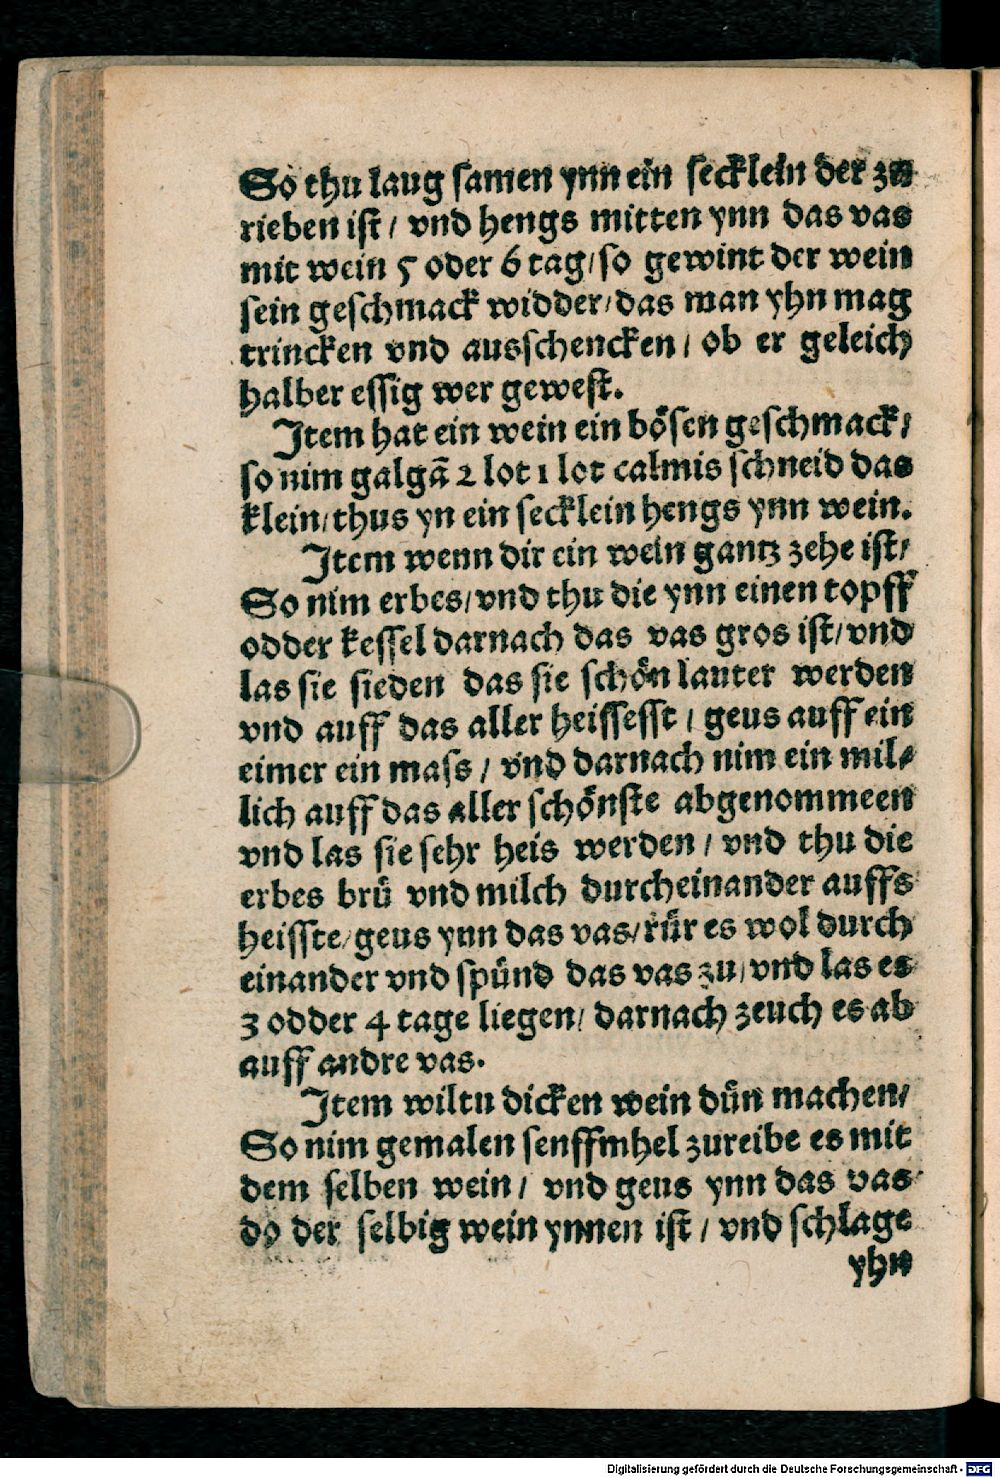 So thu laug samen ynn ein secklein der zu
rieben ist / vnd hengs mitten ynn das vas
mit wein 5 oder 6 tag / so gewint der wein
sein geschmack widder / das man yhn mag
trincken vnd ausschencken / ob er geleich
halber essig wer gewest.
Item hat ein wein ein bösen geschmack /
so nim galgã 2 lot 1 lot calmis schneid das
klein / thus yn ein secklein hengs ynn wein.
Item wenn dir ein wein gantz zehe ist /
So nim erbes / vnd thu die ynn einen topff
odder kessel darnach das vas gros ist / vnd
las sie sieden das sie schön lauter werden
vnd auff das aller heissesst / geus auff ein
eimer ein mass / vnd darnach nim ein mil⸗
lich auff das aller schönste abgenommeen
vnd las sie sehr heis werden / vnd thu die
erbes brü vnd milch durcheinander auffs
heisste / geus ynn das vas / rür es wol durch
einander vnd spünd das vas zu / vnd las es
3 odder 4 tage liegen / darnach zeuch es ab
auff andre vas.
Item wiltu dicken wein dün machen /
So nim gemalen senffmhel zureibe es mit
dem selben wein / vnd geus ynn das vas
do der selbig wein ynnen ist / vnd schlage
yhn
Digitalisierung gefördert durch die Deutsche Forschungsgemeinschaft - DFG